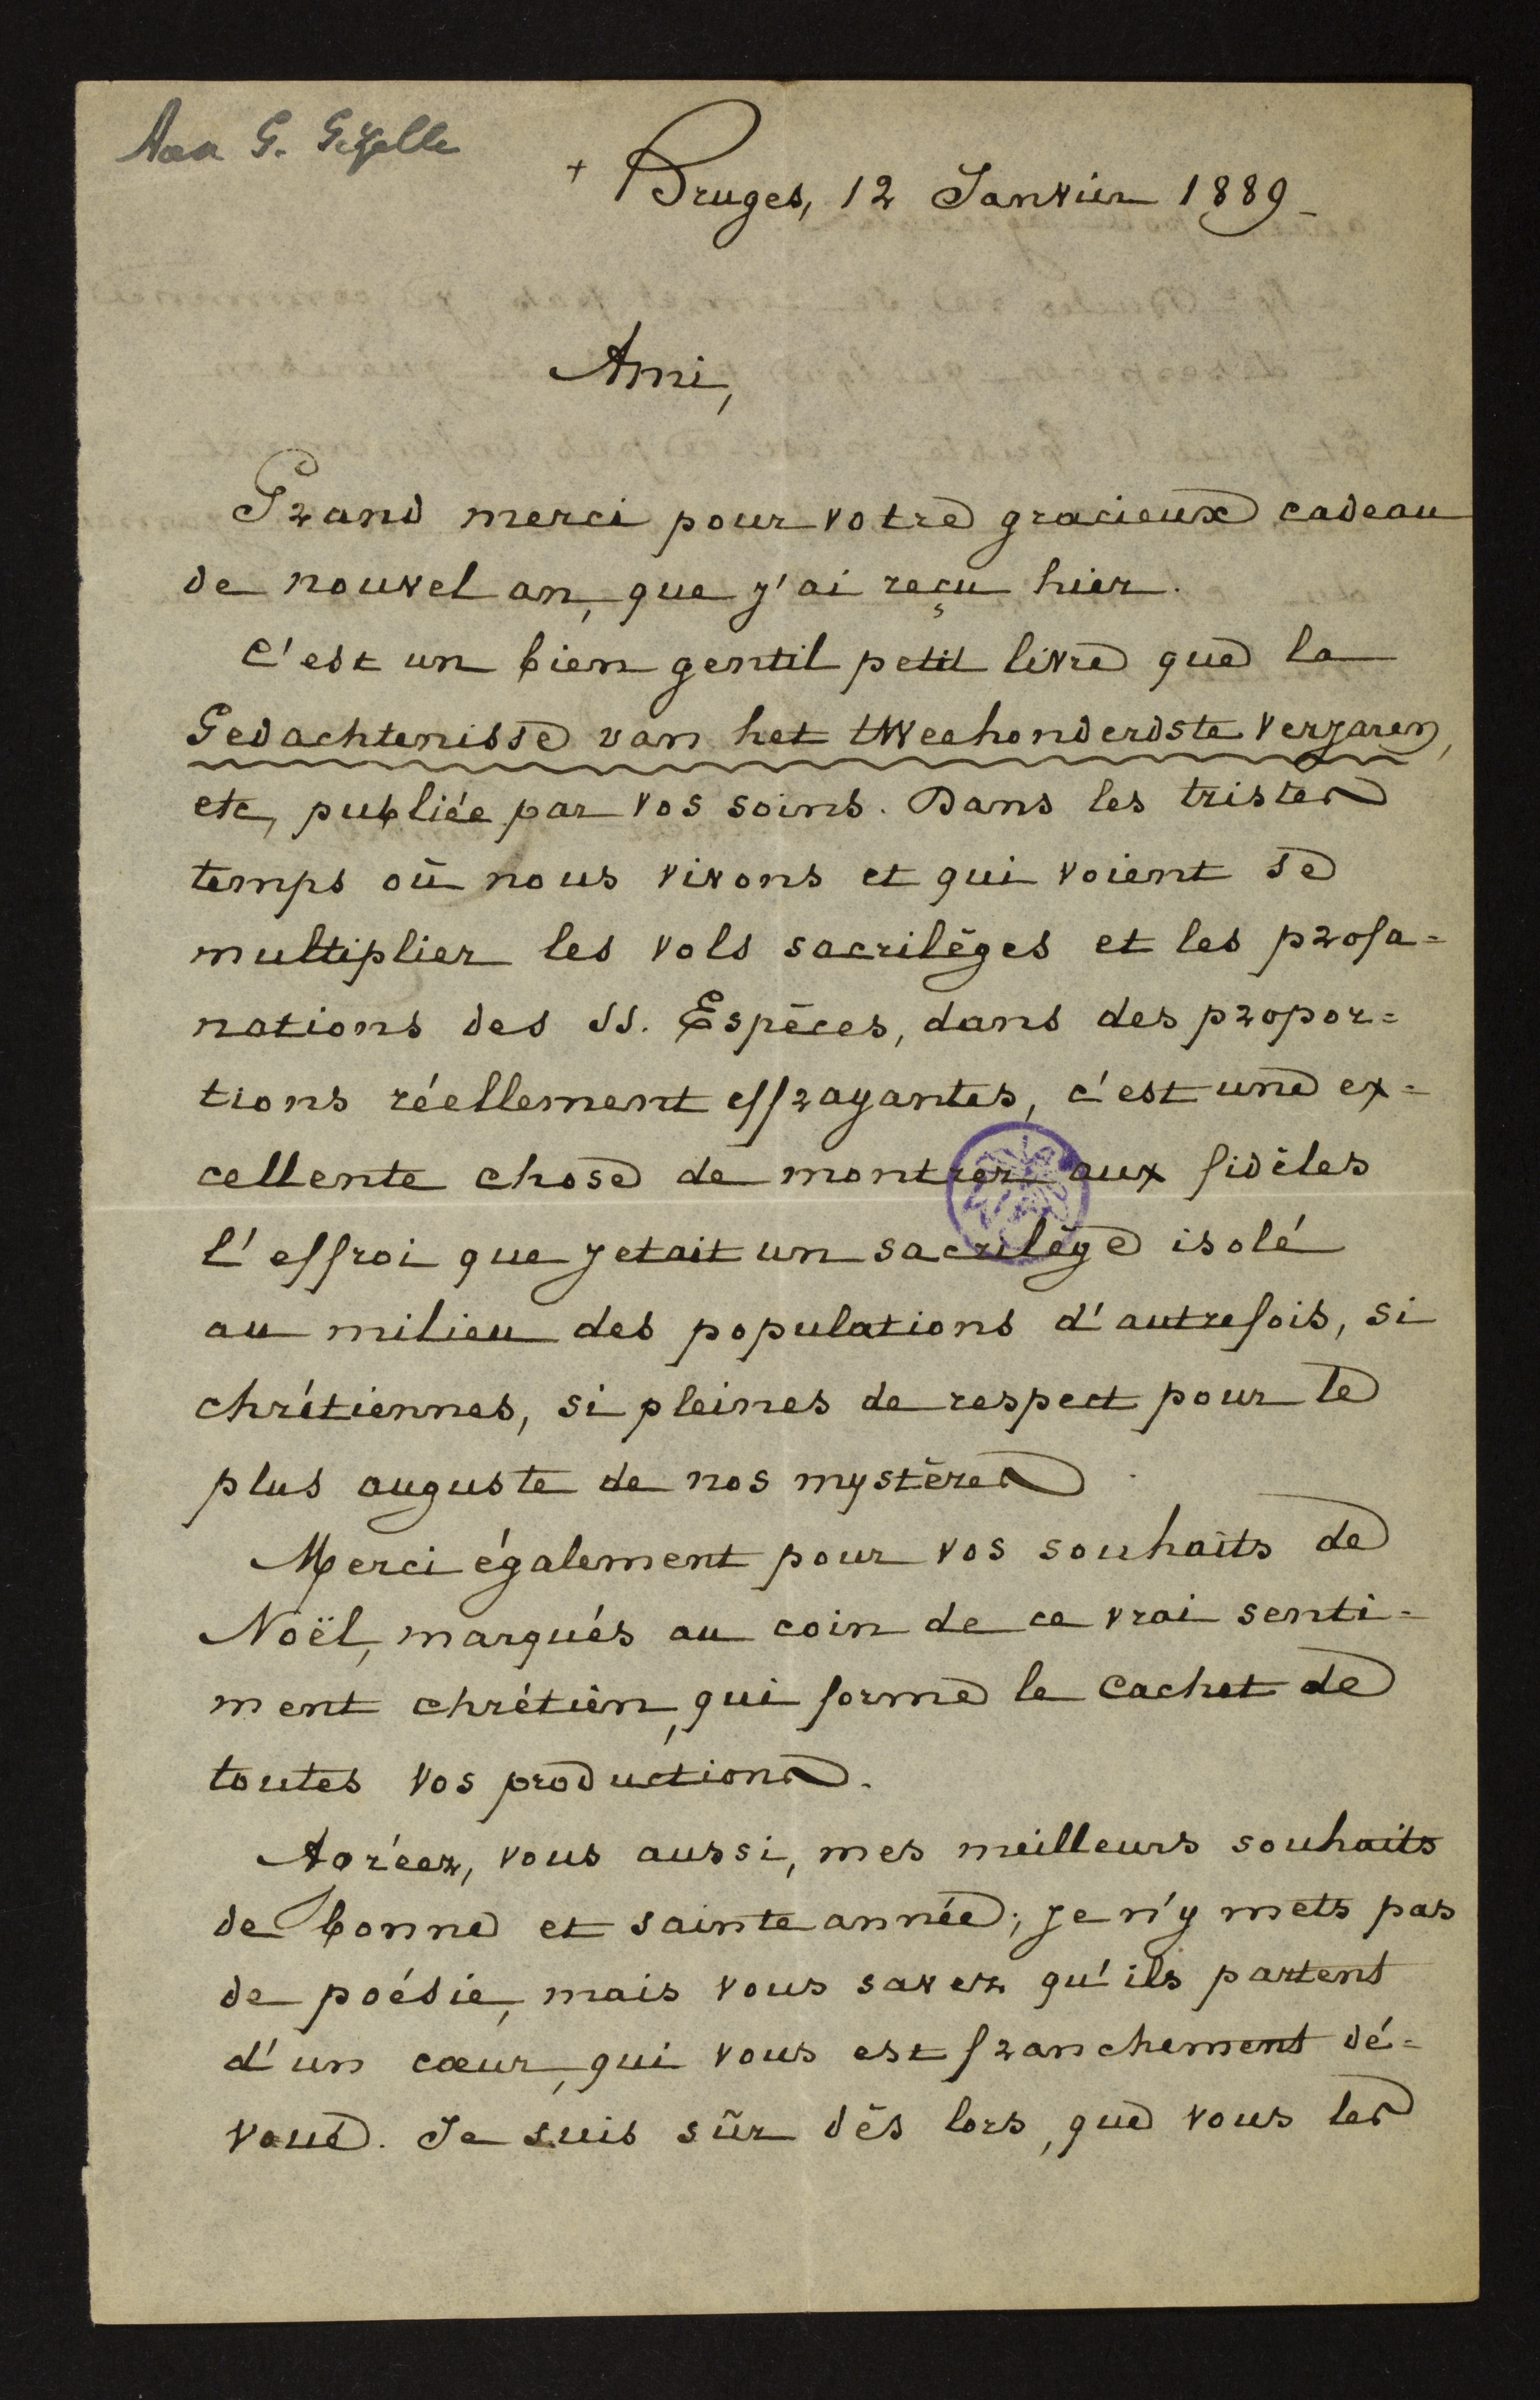 Aan G. Gezelle
+ Bruges, 12 Janvier 1889
Ami,
Grand merci pour votre gracieux cadeau
de nouvel an, que j'ai reçu hier.
C'est un bien gentil petit livre que la
Gedachtenisse van het tweehonderdste verjaren,
etc, publiée par vos soins. Dans les tristes
temps où nous vivons et qui voient se
multiplier les vols sacrilèges et les profa=
nations des SS. Espèces, dans des propor=
tions réellement effrayantes, c'est une ex=
cellente chose de montrer aux fidèles
l'effroi que jetait un sacrilège isolé
au milieu des populations d'autrefois, si
chrétiennes, si pleines de respect pour le
plus auguste de nos mystères.
Merci également pour vos souhaits de
Noël, marqués au coin de ce vrai senti=
ment chrétien, qui forme le cachet de
toutes vos productions.
Agréez, vous aussi, mes meilleurs souhaits
de bonne et sainte année; je n'y mets pas
de poésie, mais vous savez qu'ils partent
d'un cœur, qui vous est franchement dé=
voué. Je suis sûr dès lors, que vous les